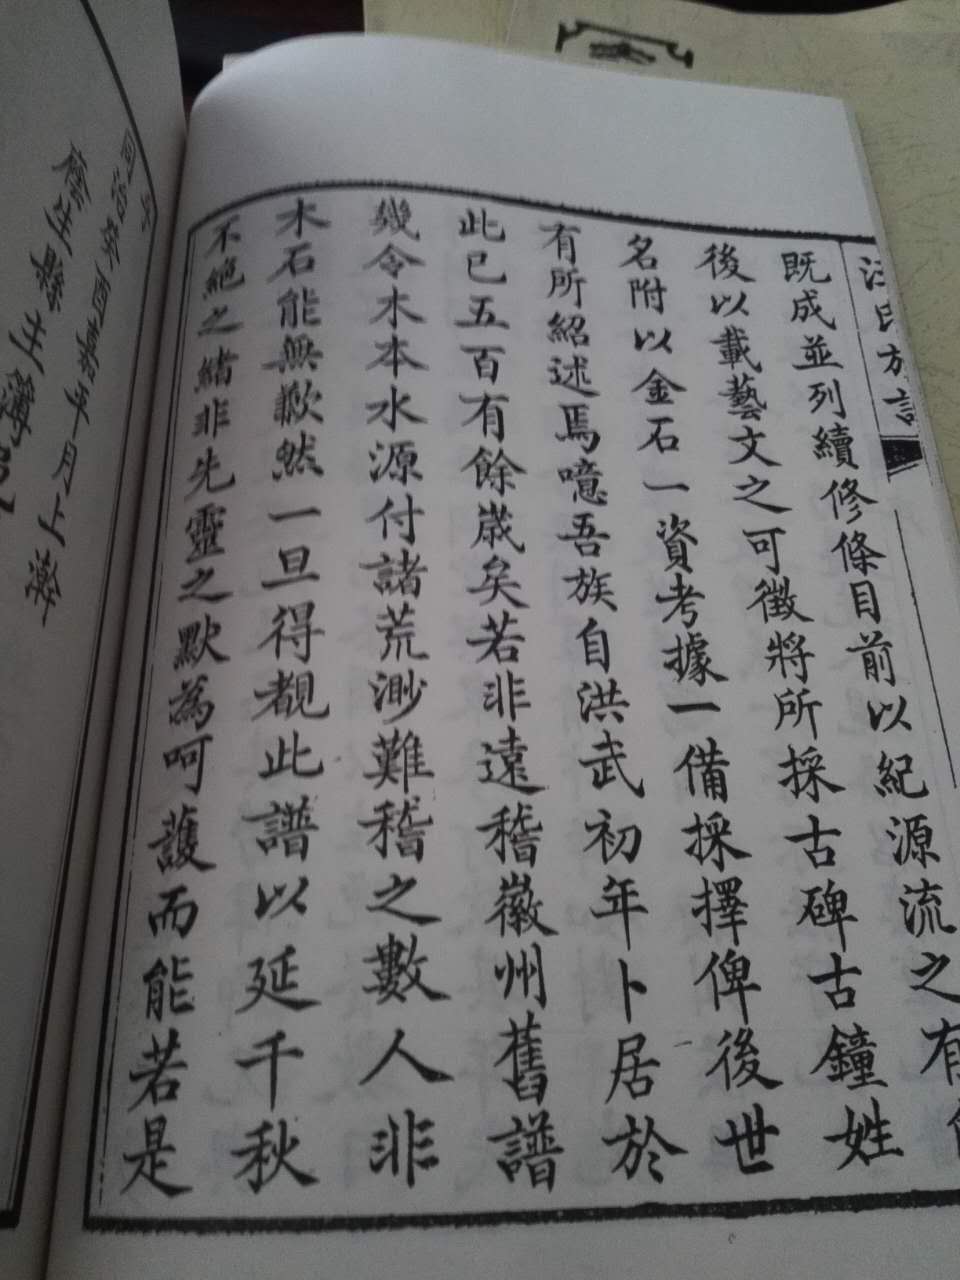 汪氏族譜
既成並列續修條目前以紀源流之有
後以載藝文之可徵將所採古碑古鐘姓
名附以金石一資考據一備採擇俾後世
有所紹述焉噫吾族自洪武初年卜居於
此已五百有餘歲矣若非遠稽徽州舊譜
幾令木本水源付諸荒渺難稽之數人非
木石能無歉然一旦得覩此譜以延千秋
不絕之緒非先靈之默為呵護而能若是
年月上澣